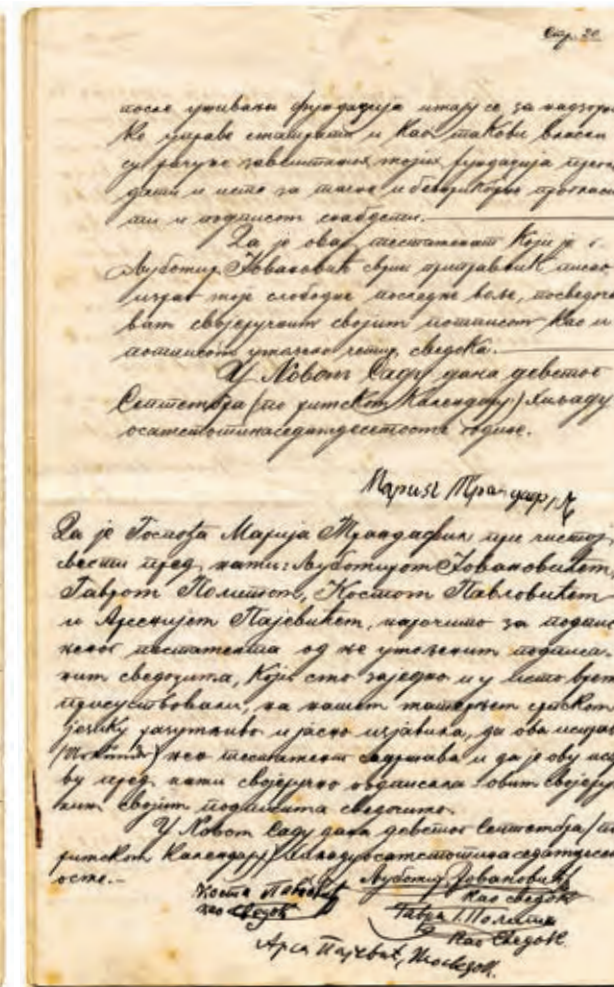 Стр. 20
после уживања фундација имају се за надзорн
ке управе сматрати и као такови власни
су рачуне завештаних мојих фундација прегле
дати и исте за тачне и безприкорне прогласи
ти и подписом снабдети.
Да је овај тестаменат који је г.
Љубомир Јовановић
израз моје слободне последње воље, посведоча
вам својеручним својим потписом као и
потписом умољено четир. сведока.
У Новом Саду дана деветог
Септембра (по римском Календару) хиљаду
осамстотинаседамдесетосме године.
Марија Трандафил
Да је Госпођа Марија Трандафил при чистој
свести пред нами: Љубомиром Јовановићем,
Гавром Политом, Костом Павловићем
и Арсенијем Пајевићем, нарочито за подпис
њеног тестамента од ње умољеним подписа-
ним сведоцима, који смо заједно и у исто време
присуствовали, на нашем матерњем српском
језику разумљиво и јасно изјавила, да ова исправ
њен тестаменат садржава и да је ову исп
ву пред нами својеручно подписала овим својеруч
ним својим подписима сведочимо.
У Новом Саду дана деветог Септембра (по
римском Календару) хиљадуосамстотинаседамдесет
осме.-
Коста Павловић
као сведок
Љубомир Јовановић
као сведок
Гавра Полит
као сведок
Арса Пајевић, као сведок.